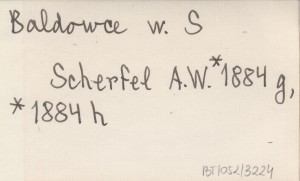 Baldowce w. S
Scherfel A.W.*1884 g,
*1884 h
BT/052/3224